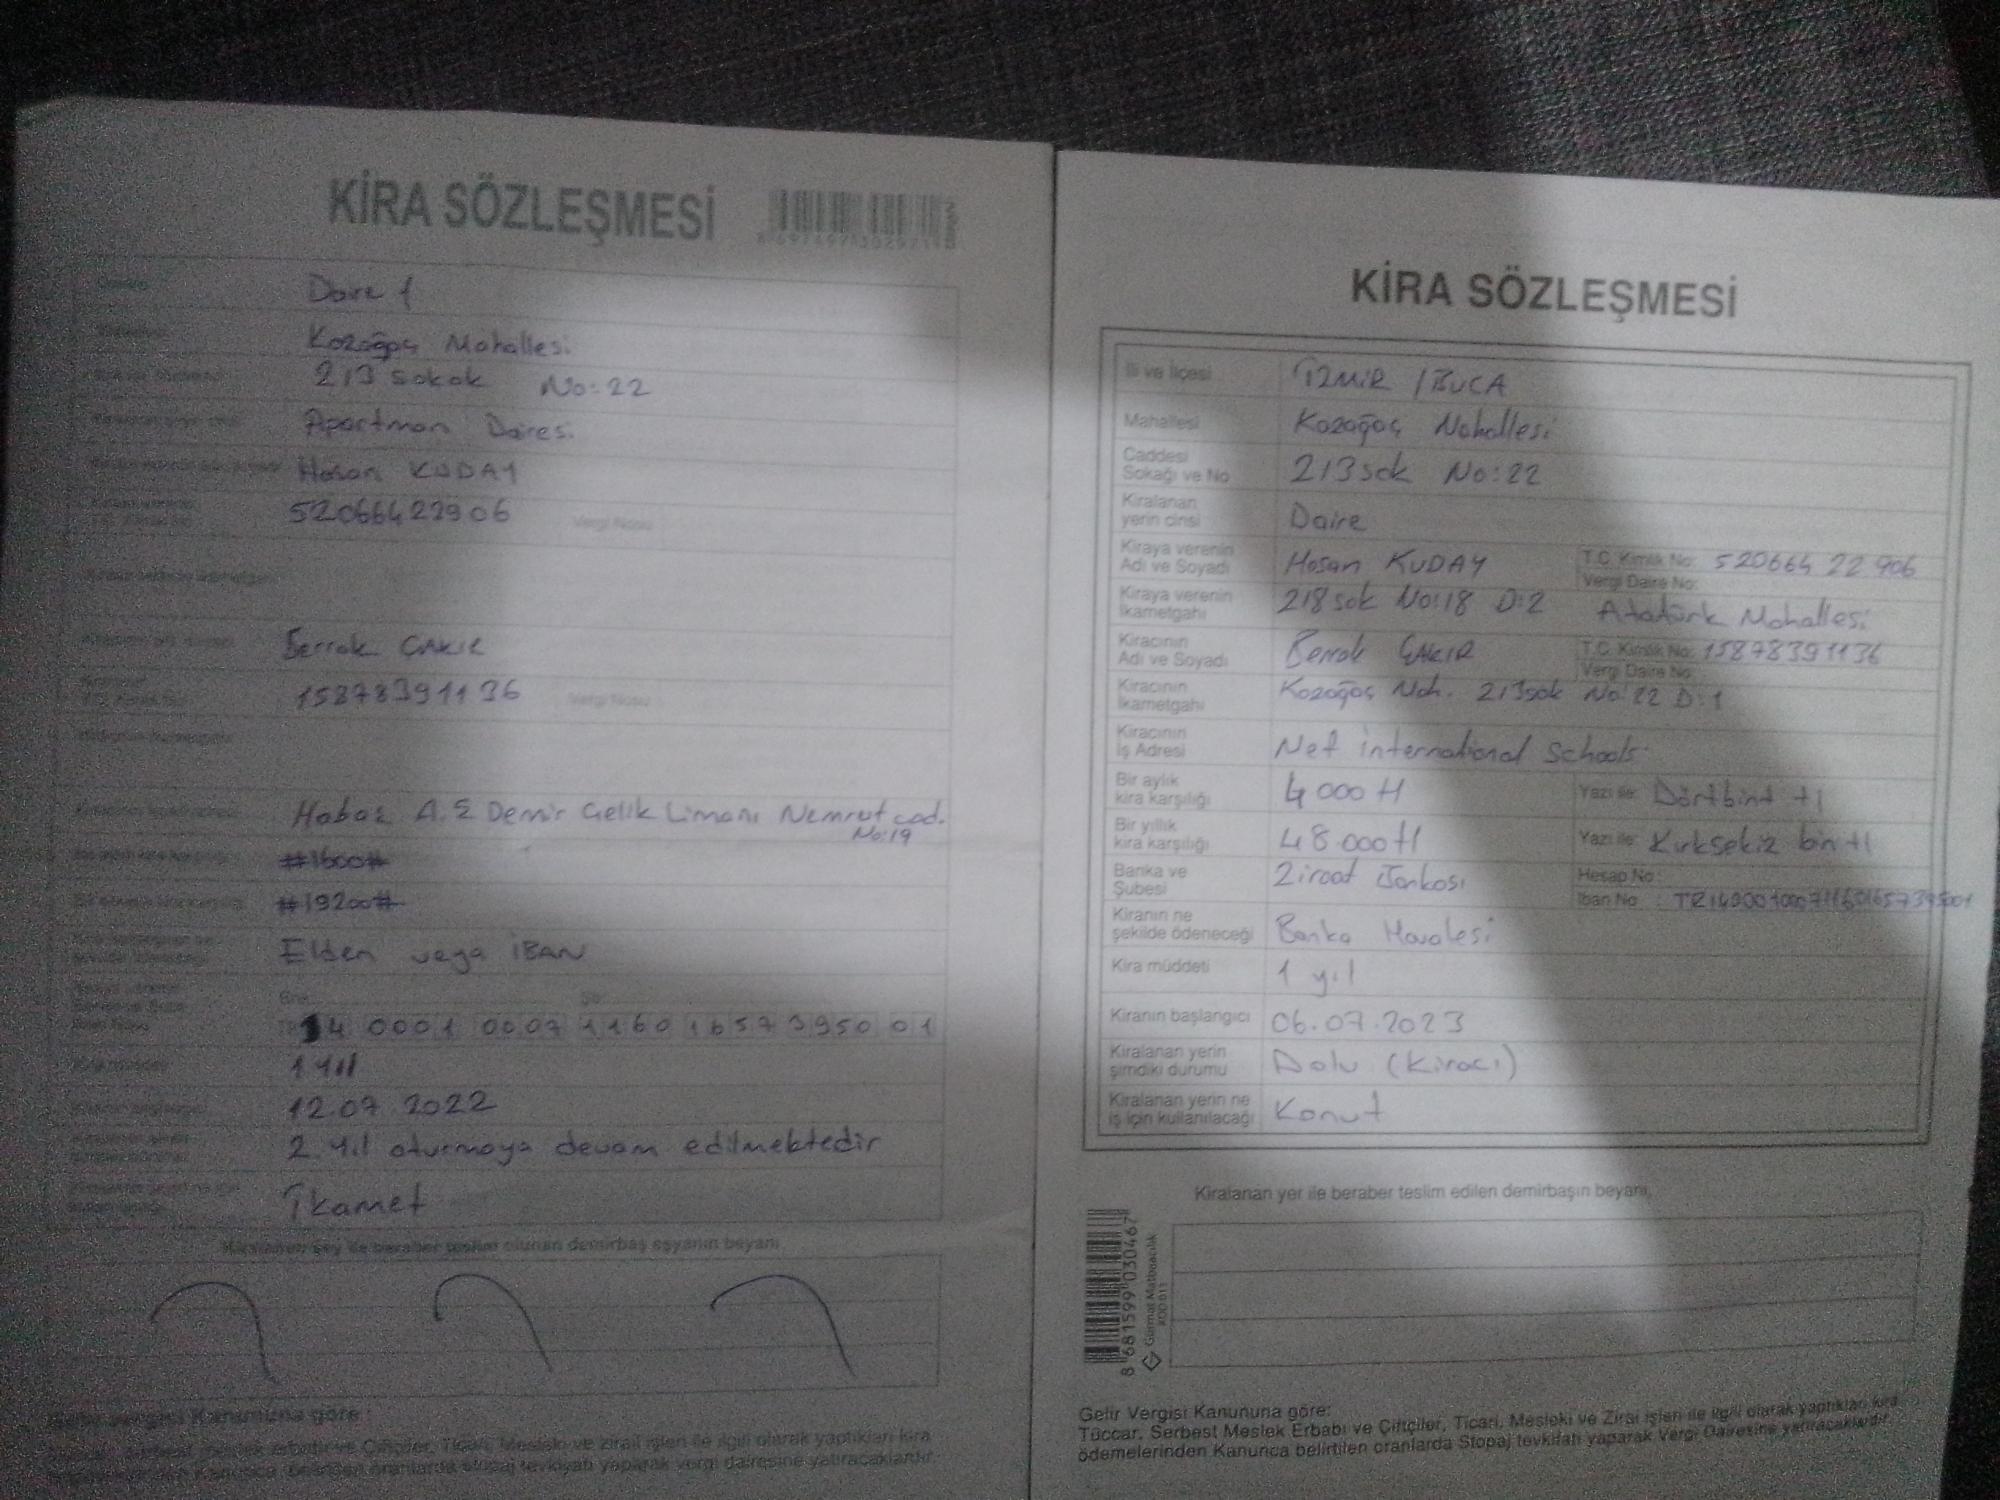 KİRA SÖZLEŞMESİ
Daire 1
Kozağaç Mahallesi
213 sokak No: 22
Apartman Dairesi
Hasan KUDAY
52066422906 Vergi Nosu
Berrak ÇAKIR
15878391136 Vergi Nosu
Habaş A.Ş Demir Çelik Limanı Nemrut cad.
No:19
#1600#
#19200#
Elden veya İBAN
14 0001 0007 1160 1657 3950 01
1 Yıl
12.07.2022
2. Yıl oturmaya devam edilmektedir
İkamet
Kiralanan şey ile beraber teslim olunan demirbaş eşyanın beyanı
Gelir vergisi Kanununa göre:
Tüccar, serbest meslek erbabı ve Çiftçiler, Ticari, Mesleki ve zirai işleri ile ilgili olarak yaptıkları kira
ödemelerinden Kanunca belirtilen oranlarda stopaj tevkifatı yaparak vergi dairesine yatıracaklardır.
KİRA SÖZLEŞMESİ
İli ve İlçesi İZMİR / BUCA
Mahallesi Kozağaç Mahallesi
Caddesi
Sokağı ve No 213 sok No: 22
Kiralanan
yerin cinsi Daire
Kiraya verenin
Adı ve Soyadı Hasan KUDAY T.C. Kimlik No: 520664 22 906
Vergi Daire No:
Kiraya verenin
İkametgahı 218 sok No:18 D:2 Atatürk Mahallesi
Kiracının
Adı ve Soyadı Berrak ÇAKIR T.C. Kimlik No: 15878391136
Vergi Daire No:
Kiracının
İkametgahı Kozağaç Mah. 213sok No: 22 D:1
Kiracının
İş Adresi Net international Schools
Bir aylık
kira karşılığı 4000 tl Yazı ile: Dörtbin tl
Bir yıllık
kira karşılığı 48.000 tl Yazı ile: Kırksekiz bin tl
Banka ve
Şubesi Ziraat Bankası Hesap No:
İban No :
Kiranın ne
şekilde ödeneceği Banka Havalesi
Kira müddeti 1 yıl
Kiranın başlangıcı 06.07.2023
Kiralanan yerin
şimdiki durumu Dolu (Kiracı)
Kiralanan yerin ne
iş için kullanılacağı Konut
Kiralanan yer ile beraber teslim edilen demirbaşın beyanı,
8 681599 030467
Gürmat Matbaacılık
Gelir Vergisi Kanununa göre:
Tüccar, Serbest Meslek Erbabı ve Çiftçiler, Ticari, Mesleki ve Zirai işleri ile ilgili olarak yaptıkları kira
ödemelerinden Kanunca belirtilen oranlarda Stopaj tevkifatı yaparak Vergi Dairesine yatıracaklardır.